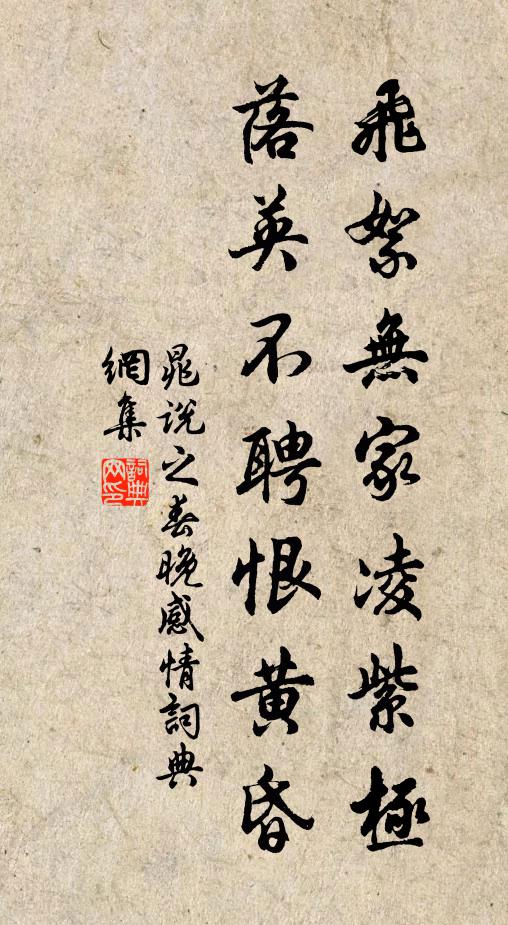 飛絮無家凌紫極
落英不聘恨黃昏
晁說之春晚感情詞典
網集
詞典網印